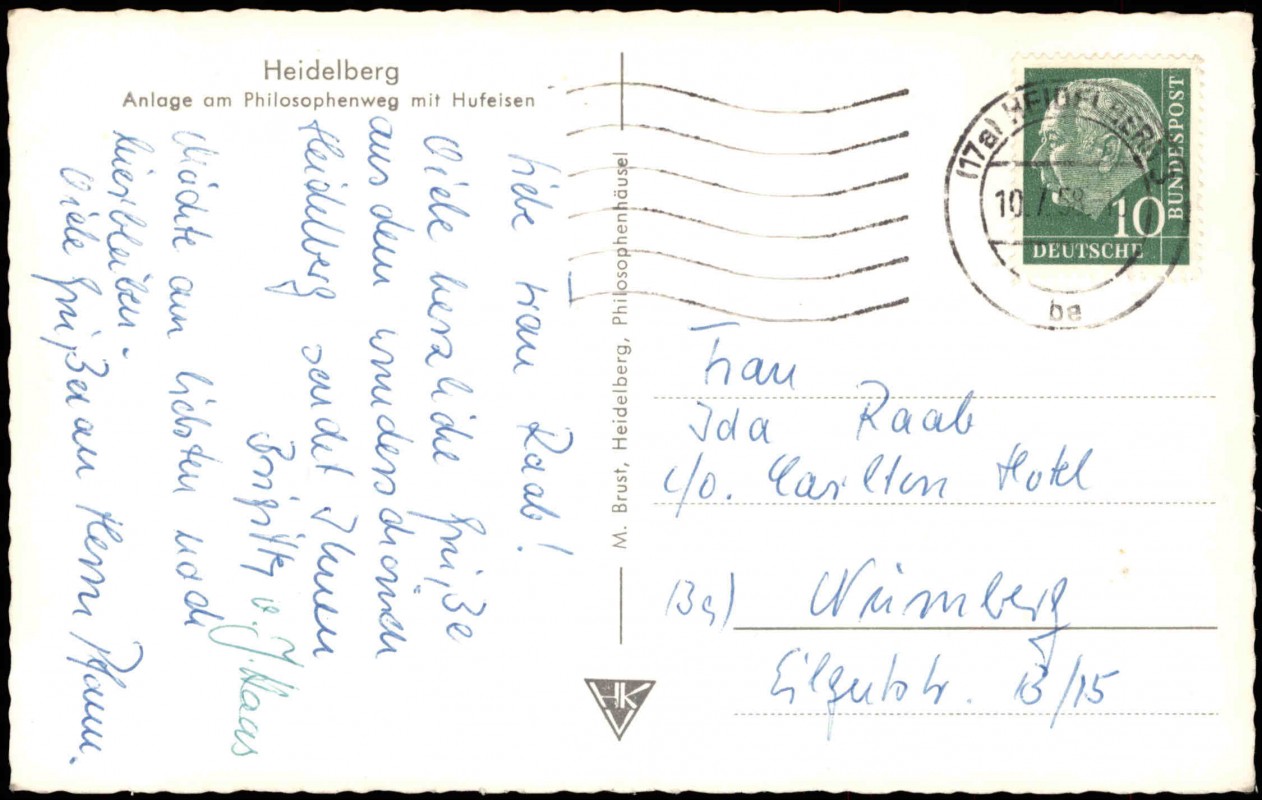 Heidelberg
Anlage am Philosophenweg mit Hufeisen
Liebe Frau Raab!
Viele herzliche Grüße
aus dem wunderschönen
Heidelberg sendet Ihnen
Brigitte u. J. Haas
Möchte am liebsten noch
hierbleiben.
Viele Grüße an Herrn Pfann.
M. Brust, Heidelberg, Philosophenhäusel
HK
(17a) HEIDELBERG
10.7.58
ba
10
DEUTSCHE
BUNDESPOST
Frau
Ida Raab
c/o. Carlton Hotel
Nürnberg
Eilgutstr. 13/15